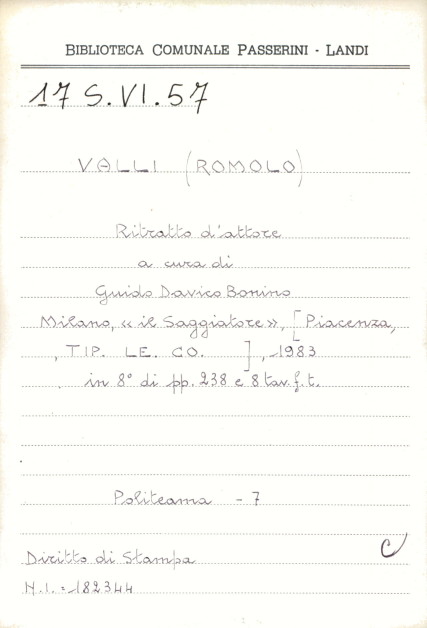 BIBLIOTECA COMUNALE PASSERINI - LANDI
17 S.VI.57
VALLI (ROMOLO)
Ritratto d'attore
a cura di
Guido Davico Bonino
Milano, «il Saggiatore», [Piacenza,
, TIP. LE. CO. ], 1983
in 8° di pp. 238 e 8 tav. f. t.
Politeama - 7
C
Diritto di Stampa
N.I. = 182344